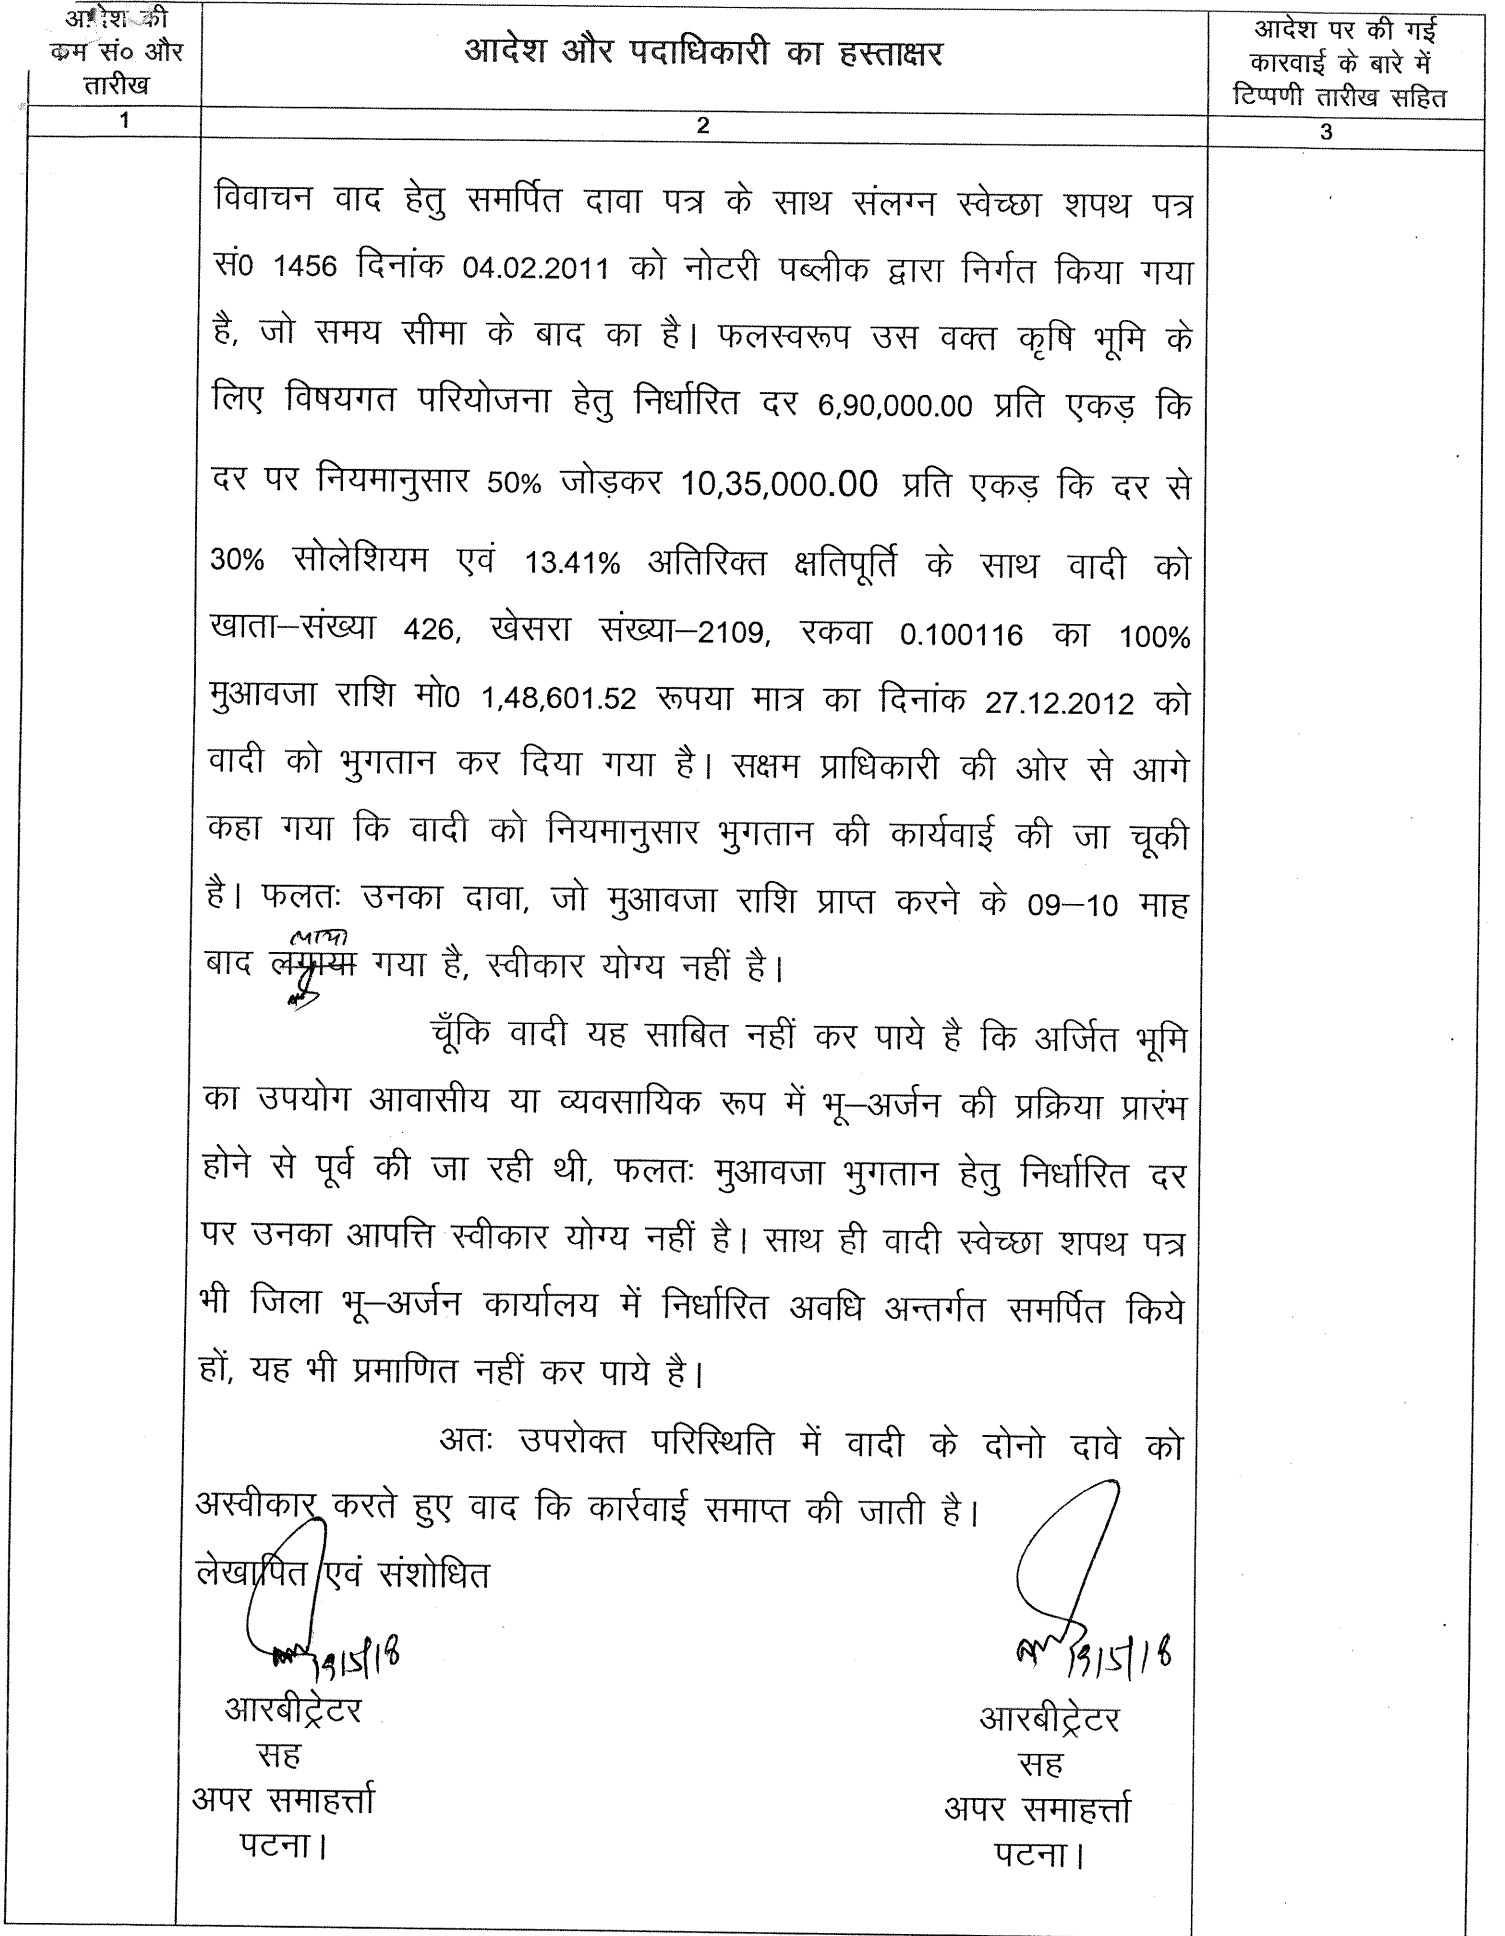 आदेश की
क्रम सं० और
तारीख
आदेश और पदाधिकारी का हस्ताक्षर
आदेश पर की गई
कारवाई के बारे में
टिप्पणी तारीख सहित
1
2
3
विवाचन वाद हेतु समर्पित दावा पत्र के साथ संलग्न स्वेच्छा शपथ पत्र
सं0 1456 दिनांक 04.02.2011 को नोटरी पब्लीक द्वारा निर्गत किया गया
है, जो समय सीमा के बाद का है। फलस्वरूप उस वक्त कृषि भूमि के
लिए विषयगत परियोजना हेतु निर्धारित दर 6,90,000.00 प्रति एकड़ कि
दर पर नियमानुसार 50% जोड़कर 10,35,000.00 प्रति एकड़ कि दर से
30% सोलेशियम एवं 13.41% अतिरिक्त क्षतिपूर्ति के साथ वादी को
खाता–संख्या 426, खेसरा संख्या–2109, रकवा 0.100116 का 100%
मुआवजा राशि मो0 1,48,601.52 रूपया मात्र का दिनांक 27.12.2012 को
वादी को भुगतान कर दिया गया है। सक्षम प्राधिकारी की ओर से आगे
कहा गया कि वादी को नियमानुसार भुगतान की कार्यवाई की जा चूकी
है। फलतः उनका दावा, जो मुआवजा राशि प्राप्त करने के 09–10 माह
लाया
बाद लगाया गया है, स्वीकार योग्य नहीं है।
चूँकि वादी यह साबित नहीं कर पाये है कि अर्जित भूमि
का उपयोग आवासीय या व्यवसायिक रूप में भू–अर्जन की प्रक्रिया प्रारंभ
होने से पूर्व की जा रही थी, फलतः मुआवजा भुगतान हेतु निर्धारित दर
पर उनका आपत्ति स्वीकार योग्य नहीं है। साथ ही वादी स्वेच्छा शपथ पत्र
भी जिला भू–अर्जन कार्यालय में निर्धारित अवधि अन्तर्गत समर्पित किये
हों, यह भी प्रमाणित नहीं कर पाये है।
अतः उपरोक्त परिस्थिति में वादी के दोनो दावे को
अस्वीकार करते हुए वाद कि कार्रवाई समाप्त की जाती है।
लेखापित एवं संशोधित
आरबीट्रेटर
सह
अपर समाहर्त्ता
पटना।
आरबीट्रेटर
सह
अपर समाहर्त्ता
पटना।